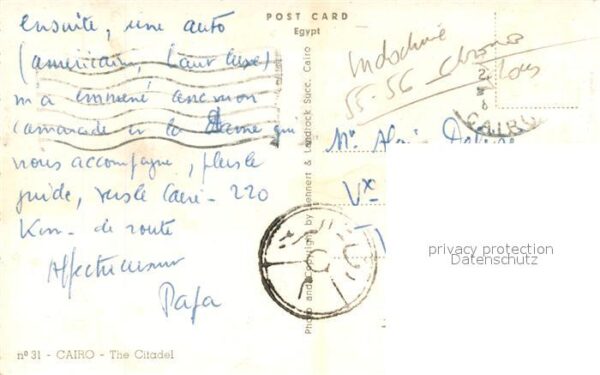 POST CARD
Egypt
ensuite, une auto
(américaine, haut luxe)
m'a emmené avec mon
camarade et la dame qui
nous accompagne, plus le
guide, vers le Caire - 220
Km - de route
Affectueusement
Papa
Indochine
55-56
CAIRO
Mr Alain
Photo and Copyright by Lehnert & Landrock Succ. Cairo
privacy protection
Datenschutz
nº 31 - CAIRO - The Citadel